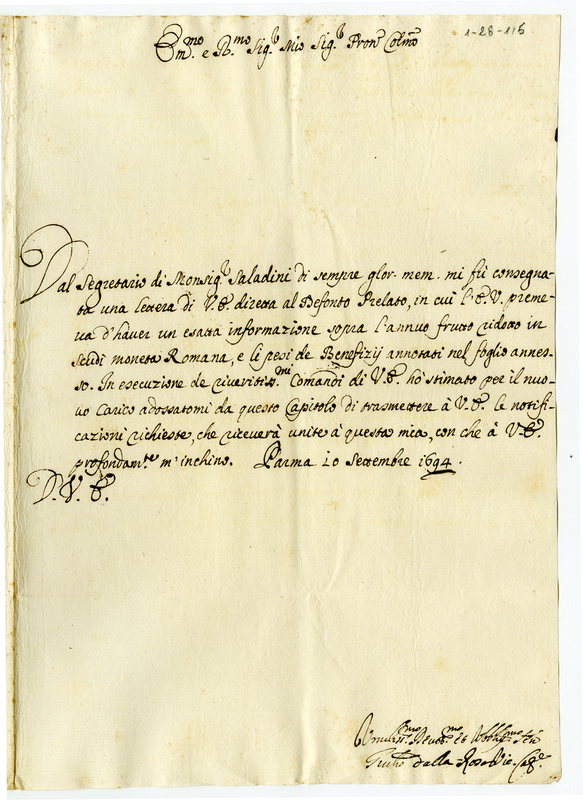 1-28-115
Em.mo e R.mo Sig.r Mio Sig.r Pron Colmo
Dal Segretario di Monsig.r Saladini di sempre glor. mem. mi fù consegna-
ta una lettera di V.E. diretta al Defonto Prelato, in cui l'E.V. preme-
va d'haver un esatta informazione sopra l'annuo frutto ridotto in
Scudi moneta Romana, e li pesi de Benefizij annotati nel foglio annes-
so. In esecuzione de riveritiss.mi Comandi di V.E. hò stimato per il nuo-
vo Carico adossatomi da questo Capitolo di trasmettere à V.E. le notifi-
cazioni richieste, che riceverà unite à questa mia, con che à V.E.
profondam.te m'inchino. Parma 10 Settembre 1694.
D. V. E.
Umiliss.mo Devot.mo et Obblig.mo
dalla Rosa Vic. Cap.e